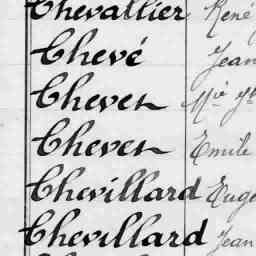 Chevallier René
Chevé Jean
Chever
Chever Emile
Chevillard
Chevillard Jean